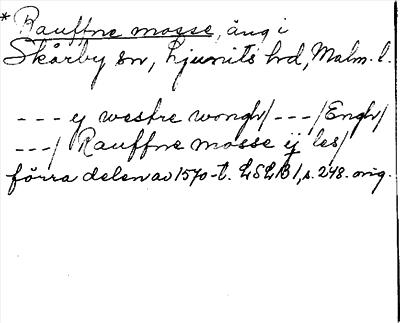 * Rauffne mosse, äng i
Skårby sn, Ljunits hd, Malm. l.
--- y westre wongh/ ---/Engh/
---/ Rauffne mosse ij les/
förra delen av 1570-t. LSLB 1, s. 248. orig.